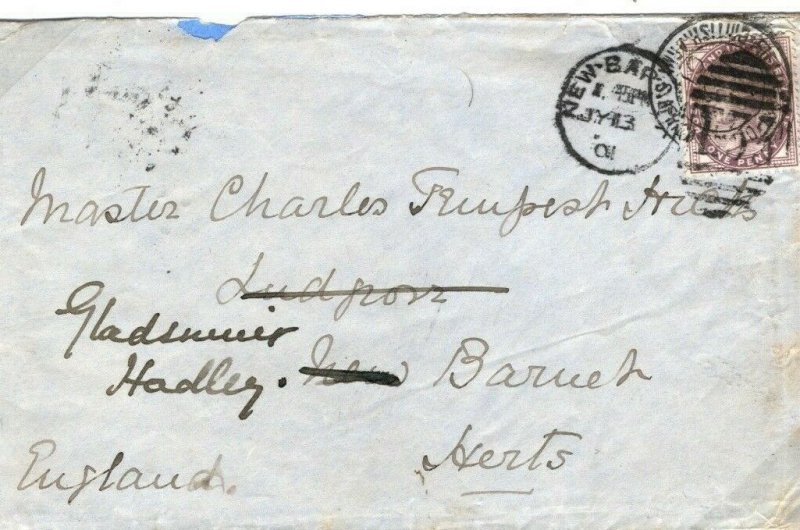 NEW-BAR
1.45PM
JY 13
01
ONE PENNY
Master Charles Tempest Hicks
Ludgrove
Gladsmuir
Hadley. New Barnet
Herts
England.